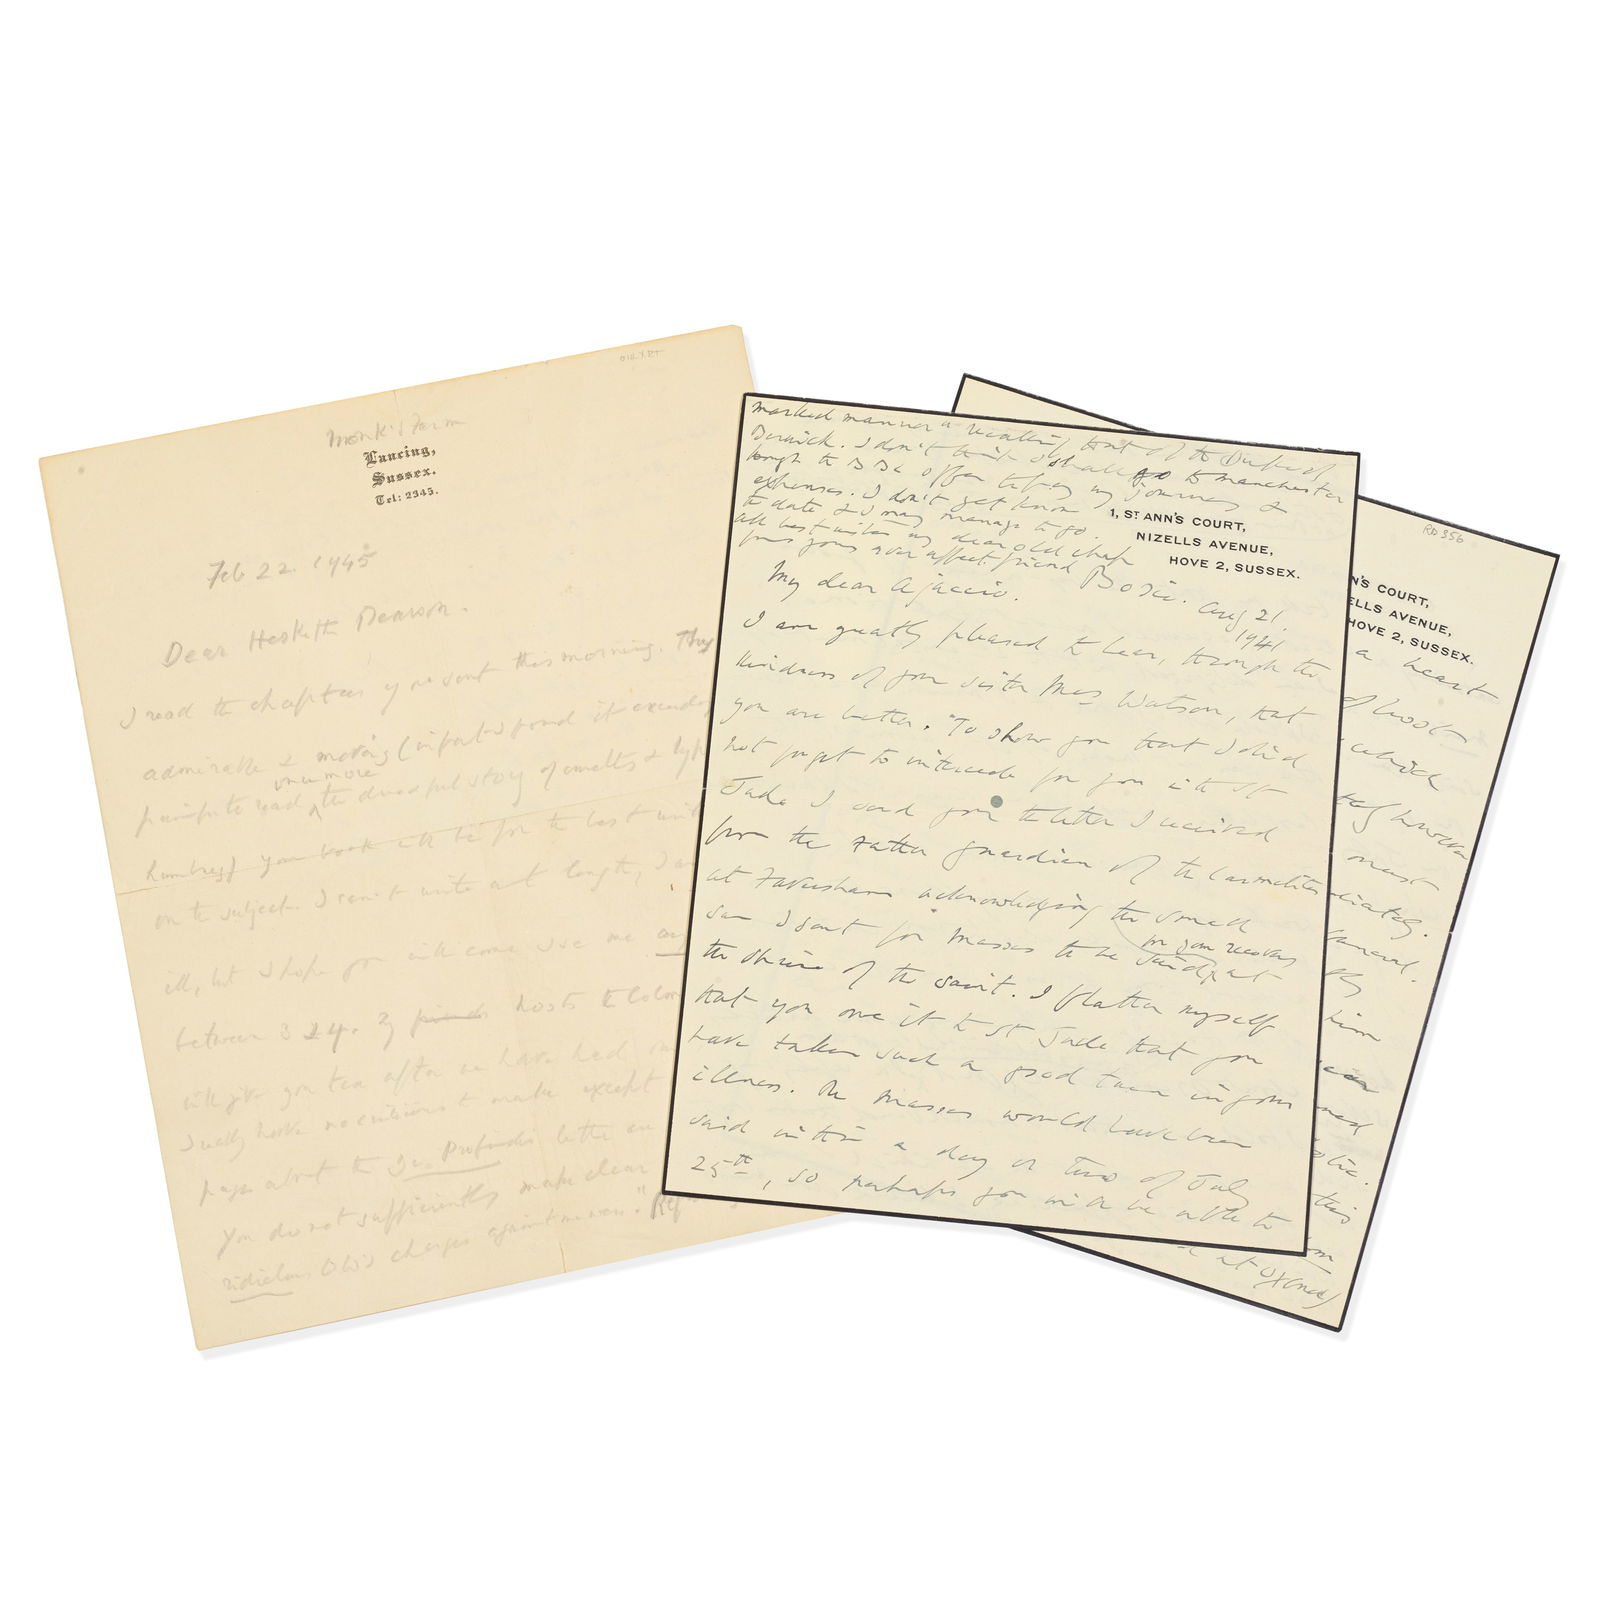 Monk's Farm
Lancing,
Sussex.
Tel: 2345.
Feb 22. 1945
Dear Hesketh Pearson.
I read the chapters you sent this morning. They
admirable & moving (in fact I found it exceeding
painful to read
once more
the dreadful story of insults &
your book will be far the best
on the subject. I can't write at length, I am
ill, but I hope you will come & see me any
between 3 & 4. My friends hosts the
will give you tea after we have had
I really have no criticisms to make except
page about the De Profundis letter
You do not sufficiently make clear
ridiculous this charges against me were. "
marked manner a recalling trait of the Duke of
Berwick. I don't think I shall go to Manchester
though the BBC offer to pay my journey &
expenses. I don't yet know
the date & I may manage to go.
All best wishes my dear old chap
from yours ever affect. friend Bosie.
1, ST ANN'S COURT,
NIZELLS AVENUE,
HOVE 2, SUSSEX.
My dear Ajaccio.
Aug 21.
1941
I am greatly pleased to hear, through the
kindness of your sister Mrs Watson, that
you are better. To show you that I did
not forget to intercede for you with St
Jude I send you the letter I received
from the Father Guardian of the Carmelites
at Faversham acknowledging the small
sum I sent for masses to be said
for your recovery
at
the shrine of the saint. I flatter myself
that you owe it to St Jude that you
have taken such a good turn in your
illness. The masses would have been
said within a day or two of July
25th, so perhaps you will be able to
RD 356
N'S COURT,
ELLS AVENUE,
HOVE 2, SUSSEX.
a heart
of
which
however
must
ciates.
general.
him
been
this
at